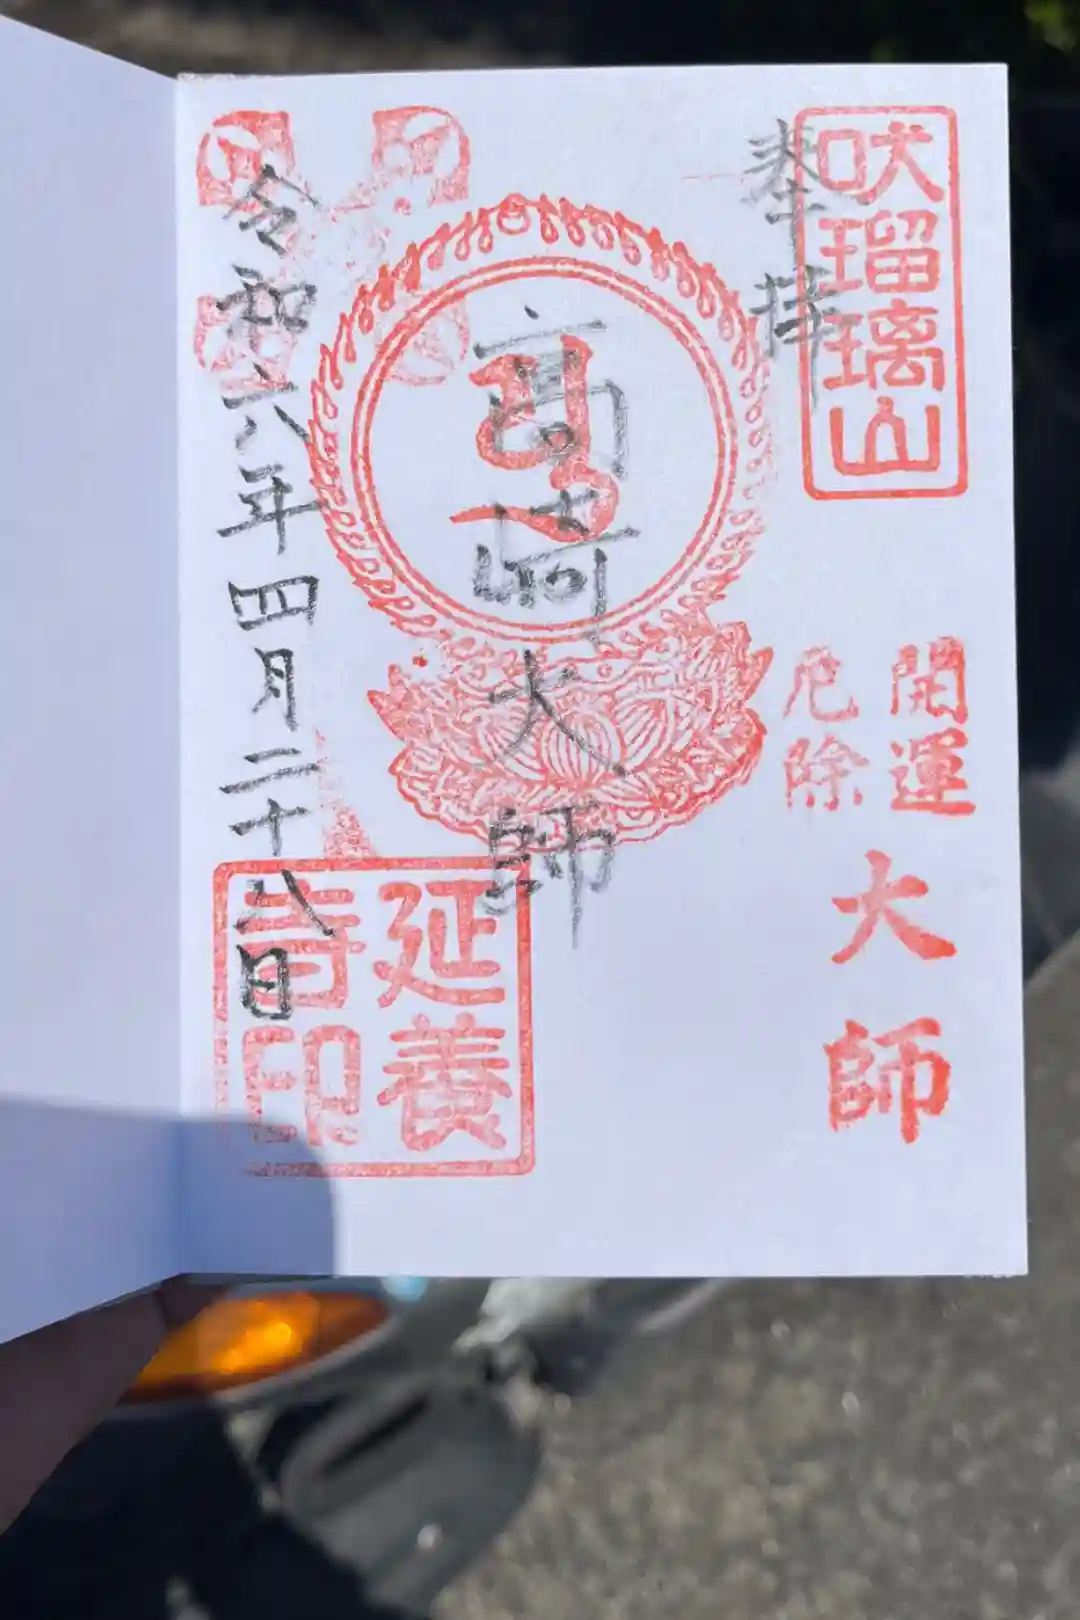 吠瑠璃山
奉拝
開運
厄除
大師
高崎大師
延養
寺印
令和六年四月二十八日